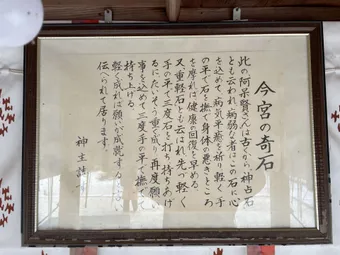 今宮の奇石
此の阿呆賢さんは古くから神占石
とも云われ、病弱な者はこの石に心
を込めて、病気平癒を祈り軽く手
の平で石を撫で身体の悪きところ
を摩れば健康の回復を早める。
又、重軽石とも云はれ先づ軽く
手の平で三度石を打ち持ちあげ
るに、たいそう重くなり、再度願い
事を込めて三度手の平で撫でて
持ち上げる。
軽くなれば願いが成就するといい
伝へられて居ります。
神主